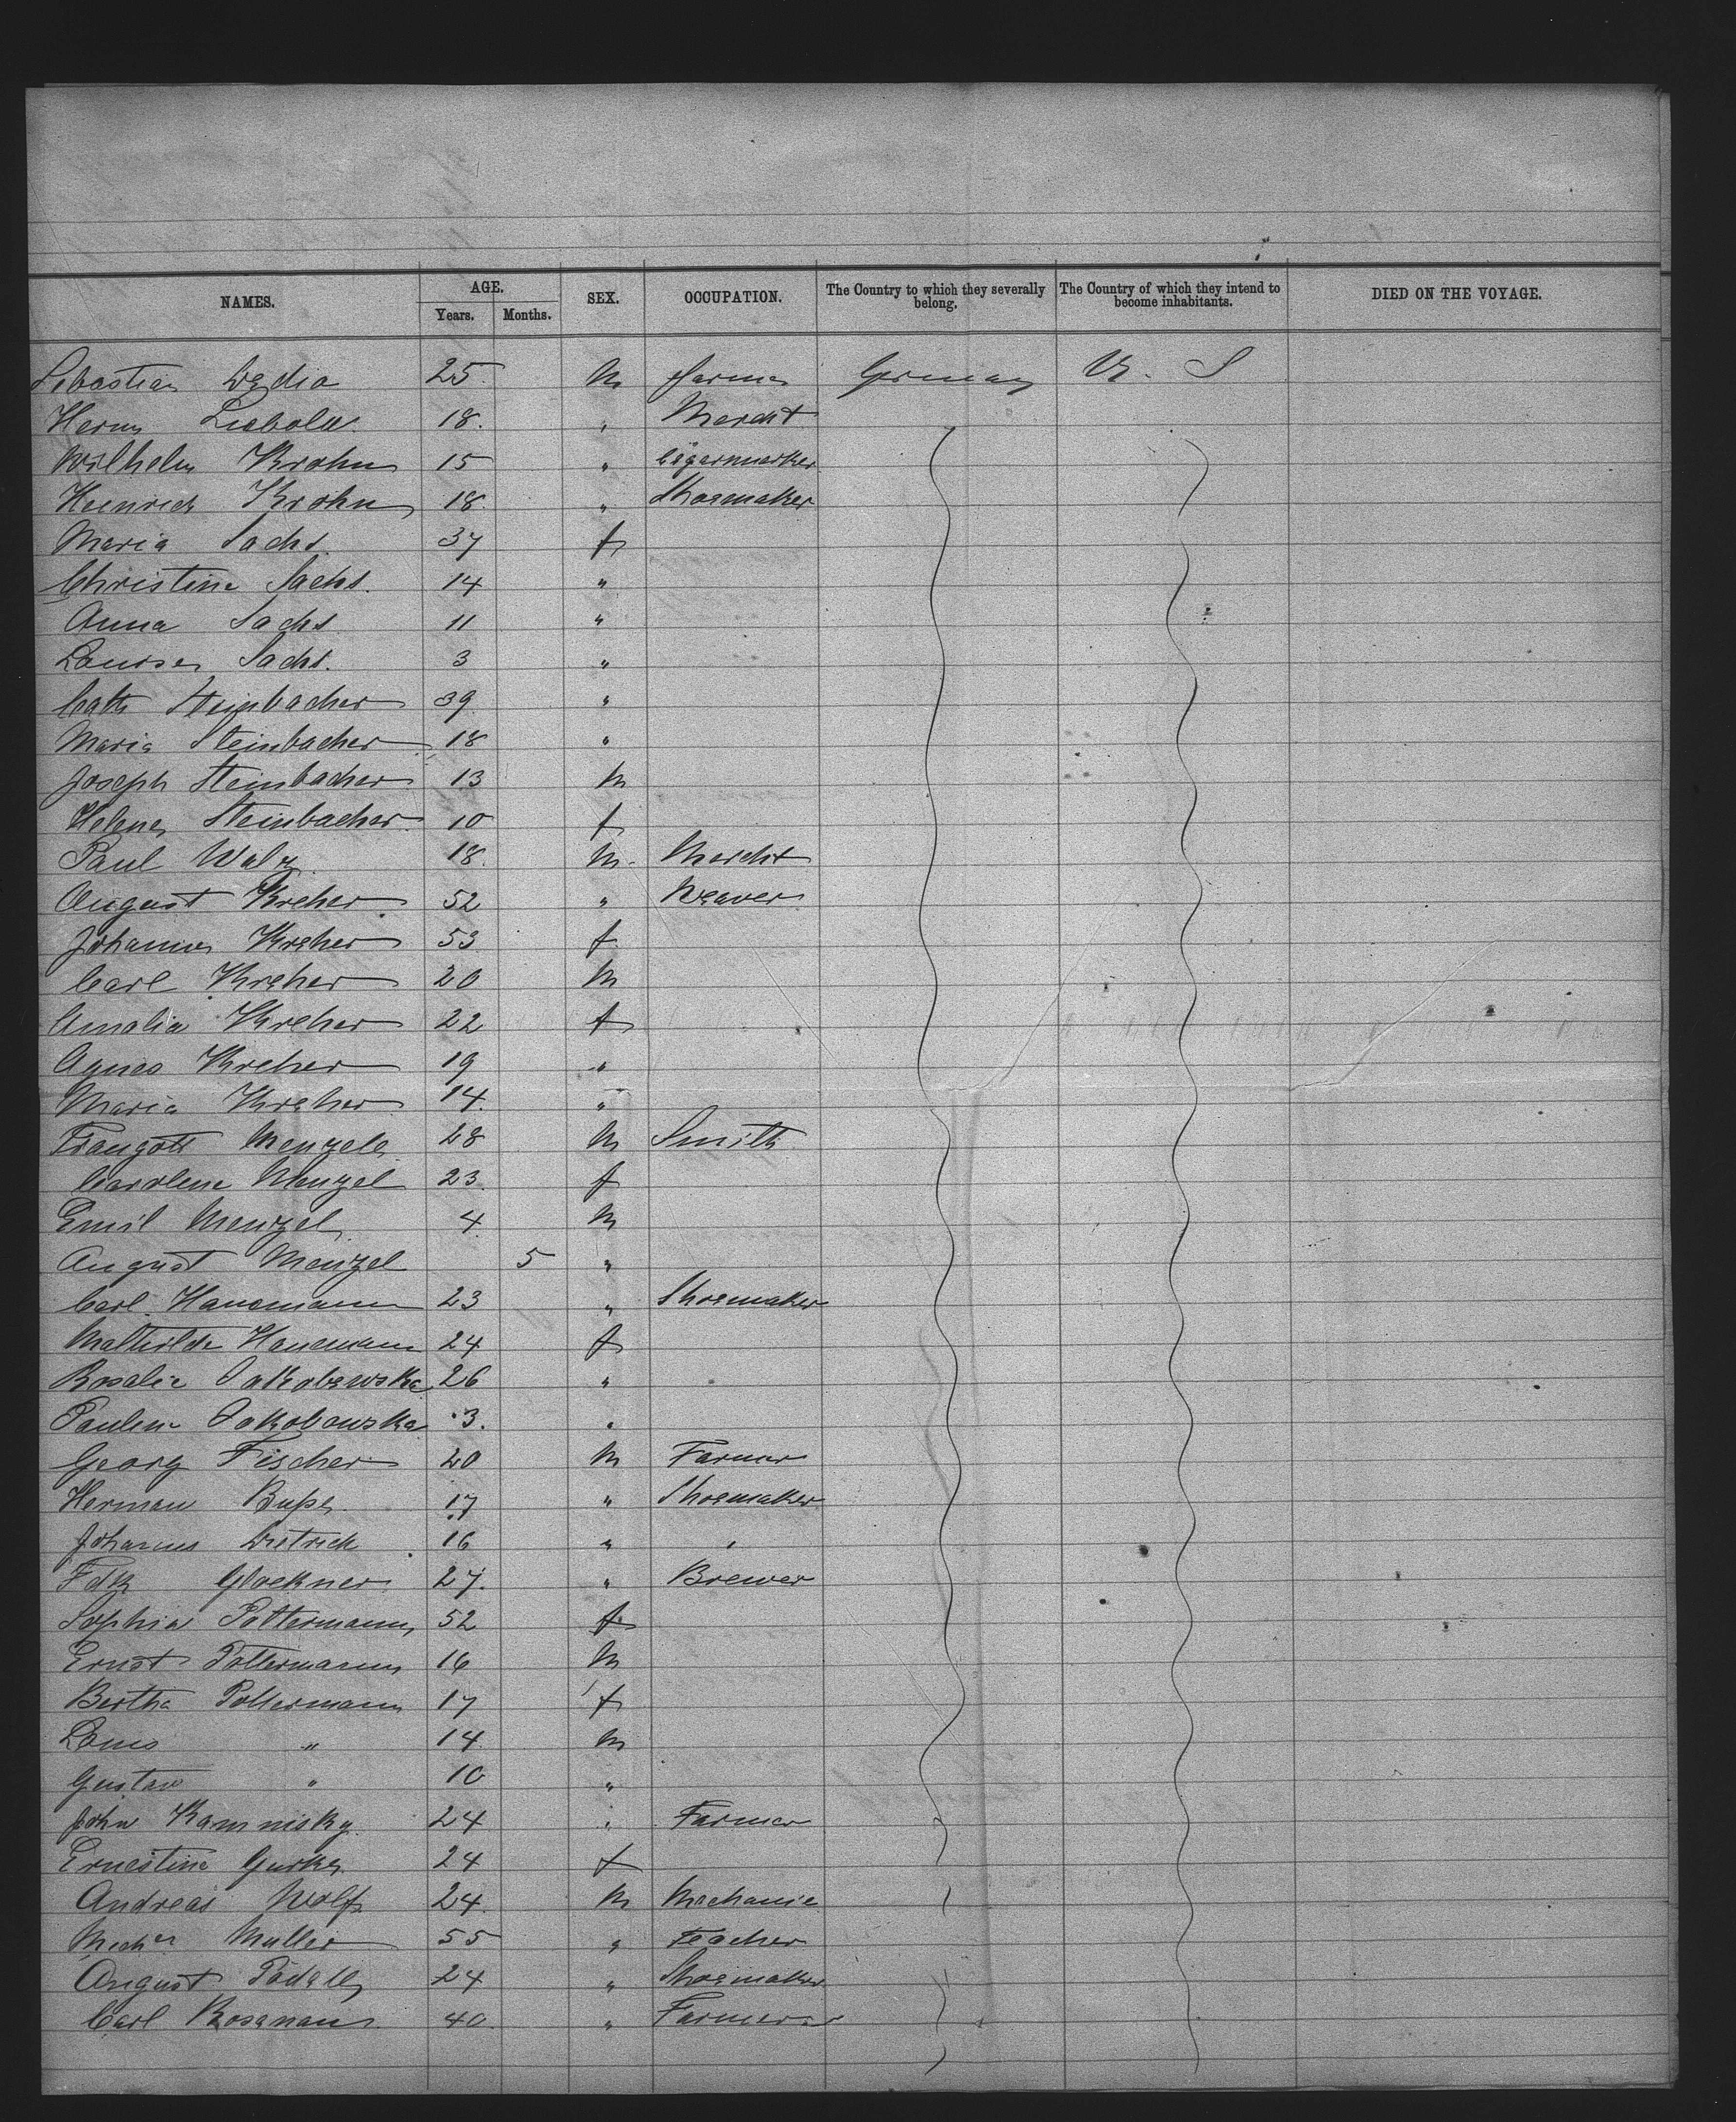 NAMES. AGE. SEX. OCCUPATION. The Country to which they severally belong. The Country of which they intend to become inhabitants. DIED ON THE VOYAGE.
Years. Months.
Sebastian 25 M Farmer Germany U. S
Herm Liebold 18. " Mercht
Wilhelm Krohn 15 " Cigarmarker
Heinrich Krohn 18. " Shoemaker
Maria Sachs. 37 f
Christine Sachs. 14 "
Anna Sachs 11 "
Louise Sachs. 3 "
Cath Steinbacher 39 "
Maria Steinbacher 18 "
Joseph Steinbacher 13 M
Helene Steinbacher 10 f
Paul Walz 18. M. Mercht
August Kreher 52 " Weaver
Johanne Kreher 53 f
Carl Kreher 20 M
Amalia Kreher 22 f
Agnes Kreher 19 "
Maria Kreher 14. "
Traugott Menzel 28 M Smith
Carolene Menzel 23. f
Emil Menzel 4. M
August Menzel 5 "
Carl Hanemann 23 " Shoemaker
Mathilde Hanemann 24 f
Rosalie Jakobowska 26 "
Pauline Jakobowska 3. "
Georg Fischer 20 M Farmer
Herman Buße 17 " Shoemaker
Johannes Dietrich 16 " "
Fdk Glockner 27. " Brewer
Sophia Pottermann 52 f
Ernst Pottermann 16 M
Bertha Pottermann 17 f
Louis " 14 M
Gustav " 10 "
John Kamnisky 24 " Farmer
Ernestine Gurke 24 f
Andreas Wolf 24. M Mechanic
Michel Muller 55 " Teacher
August 24 " Shoemaker
Carl Rosenau 40. " Farmer